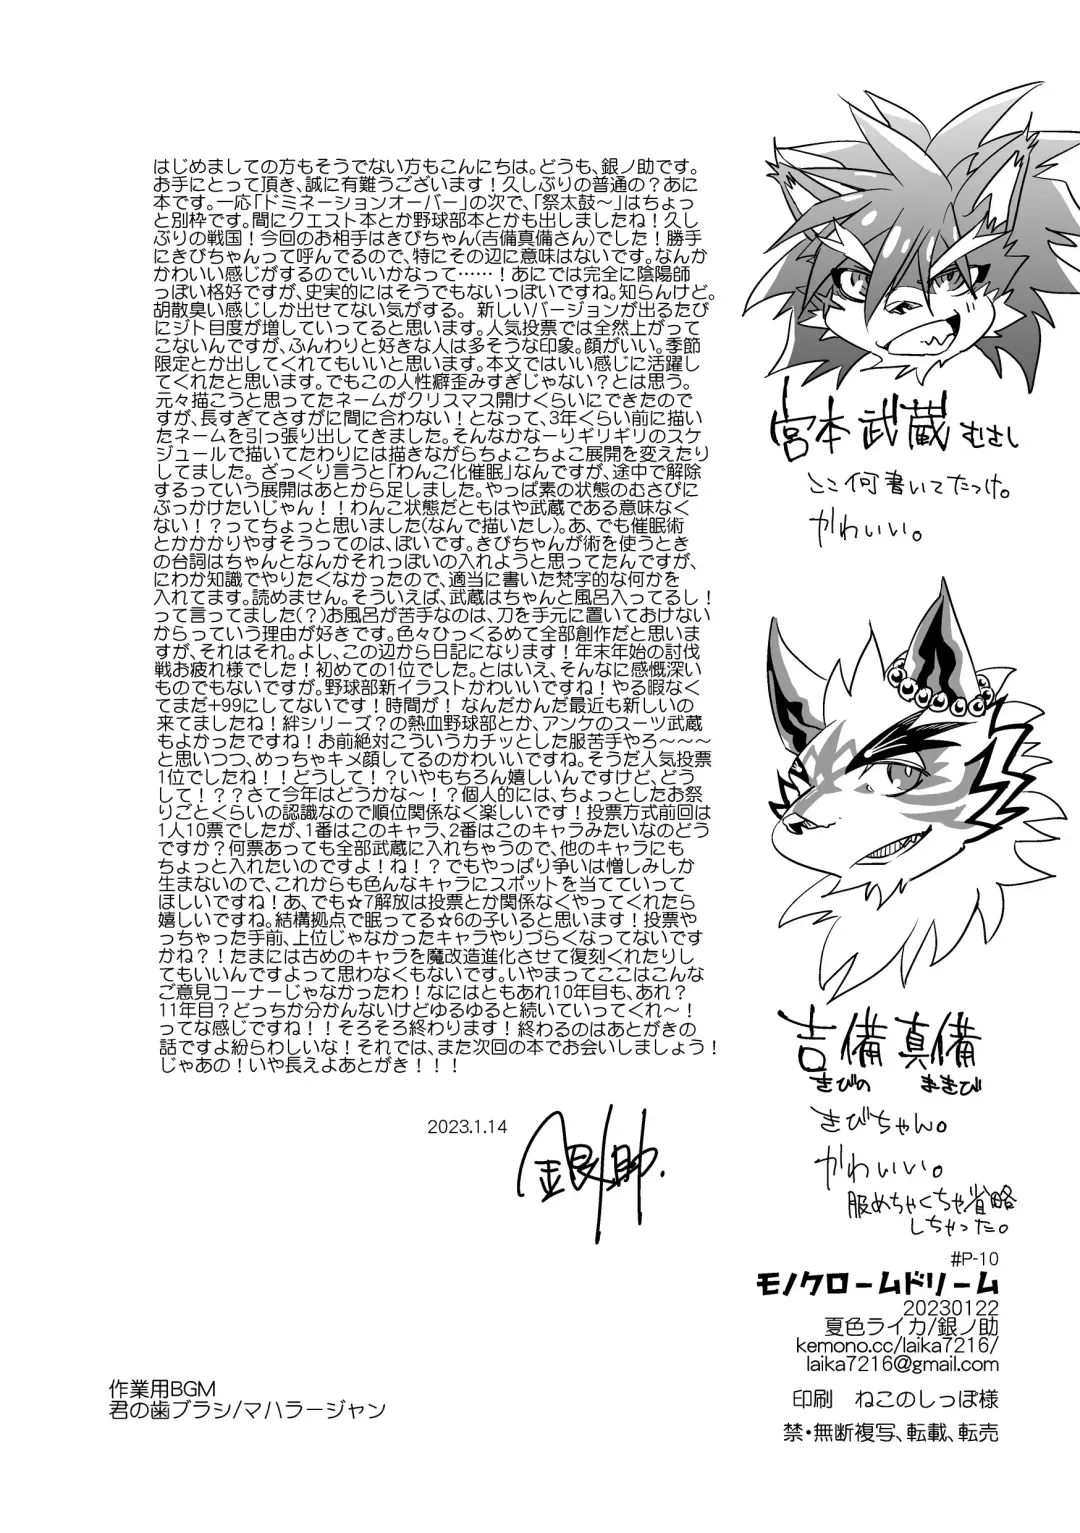 はじめましての方もそうでない方もこんにちは。どうも、銀ノ助です。
お手にとって頂き、誠に有難うございます！久しぶりの普通の？あに
本です。一応「ドミネーションオーバー」の次で、「祭太鼓～」はちょっ
と別枠です。間にクエスト本とか野球部本とかも出しましたね！久し
ぶりの戦国！今回のお相手はきびちゃん(吉備真備さん)でした！勝手
にきびちゃんって呼んでるので、特にその辺に意味はないです。なんか
かわいい感じがするのでいいかなって……！あにでは完全に陰陽師
っぽい格好ですが、史実的にはそうでもないっぽいですね。知らんけど。
胡散臭い感じしか出せてない気がする。 新しいバージョンが出るたび
にジト目度が増していってると思います。人気投票では全然上がって
こないんですが、ふんわりと好きな人は多そうな印象。顔がいい。季節
限定とか出してくれてもいいと思います。本文ではいい感じに活躍し
てくれたと思います。でもこの人性癖歪みすぎじゃない？とは思う。
元々描こうと思ってたネームがクリスマス開けくらいにできたので
すが、長すぎてさすがに間に合わない！となって、3年くらい前に描い
たネームを引っ張り出してきました。そんなかなーりギリギリのスケ
ジュールで描いてたわりには描きながらちょこちょこ展開を変えたり
してました。 ざっくり言うと「わんこ化催眠」なんですが、途中で解除
するっていう展開はあとから足しました。やっぱ素の状態のむさびに
ぶっかけたいじゃん！！わんこ状態だともはや武蔵である意味なく
ない！？ってちょっと思いました(なんで描いたし)。あ、でも催眠術
とかかかりやすそうってのは、ぽいです。きびちゃんが術を使うとき
の台詞はちゃんとなんかそれっぽいの入れようと思ってたんですが、
にわか知識でやりたくなかったので、適当に書いた梵字的な何かを
入れてます。読めません。そういえば、武蔵はちゃんと風呂入ってるし！
って言ってました(？)お風呂が苦手なのは、刀を手元に置いておけない
からっていう理由が好きです。色々ひっくるめて全部創作だと思いま
すが、それはそれ。よし、この辺から日記になります！年末年始の討伐
戦お疲れ様でした！初めての1位でした。とはいえ、そんなに感慨深い
ものでもないですが。野球部新イラストかわいいですね！やる暇なく
てまだ+99にしてないです！時間が！ なんだかんだ最近も新しいの
来てましたね！絆シリーズ？の熱血野球部とか、アンケのスーツ武蔵
もよかったですね！お前絶対こういうカチッとした服苦手やろ～～～
と思いつつ、めっちゃキメ顔してるのかわいいですね。そうだ人気投票
1位でしたね！！どうして！？いやもちろん嬉しいんですけど、どう
して！？？さて今年はどうかな～！？個人的には、ちょっとしたお祭
りごとくらいの認識なので順位関係なく楽しいです！投票方式前回は
1人10票でしたが、1番はこのキャラ、2番はこのキャラみたいなのどう
ですか？何票あっても全部武蔵に入れちゃうので、他のキャラにも
ちょっと入れたいのですよ！ね！？でもやっぱり争いは憎しみしか
生まないので、これからも色んなキャラにスポットを当てていって
ほしいですね！あ、でも☆7解放は投票とか関係なくやってくれたら
嬉しいですね。結構拠点で眠ってる☆6の子いると思います！投票や
っちゃった手前、上位じゃなかったキャラやりづらくなってないです
かね？！たまには古めのキャラを魔改造進化させて復刻くれたりし
てもいいんですよって思わなくもないです。いやまってここはこんな
ご意見コーナーじゃなかったわ！なにはともあれ10年目も、あれ？
11年目？どっちか分かんないけどゆるゆると続いていってくれ～！
ってな感じですね！！そろそろ終わります！終わるのはあとがきの
話ですよ紛らわしいな！それでは、また次回の本でお会いしましょう！
じゃあの！いや長えよあとがき！！！
2023.1.14
銀ノ助.
宮本武蔵 むさし
ここ何書いてたっけ。
かわいい。
吉備 真備
きびの まきび
きびちゃん。
かわいい。
服めちゃくちゃ省略
しちゃった。
#P-10
モノクロームドリーム
20230122
夏色ライカ/銀ノ助
kemono.cc/laika7216/
laika7216@gmail.com
印刷 ねこのしっぽ様
禁・無断複写、転載、転売
作業用BGM
君の歯ブラシ/マハラージャン